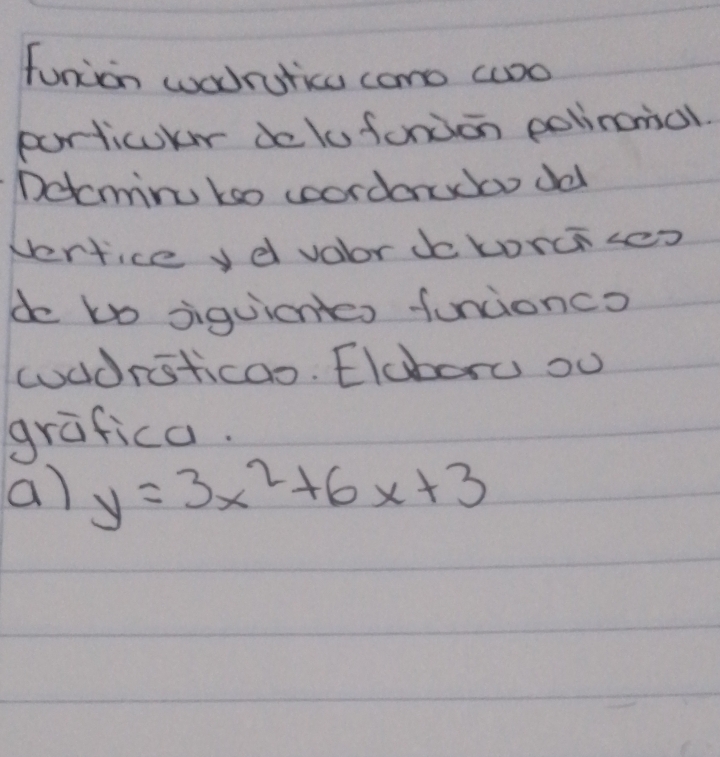 Función cuadrática como caso
particular de la función polinomial.
Determina las coordenadas del
vertice y el valor de las raíces
de las siguientes funciones
cuadráticas. Elabora su
gráfica.
a) y = 3x²+6x+3